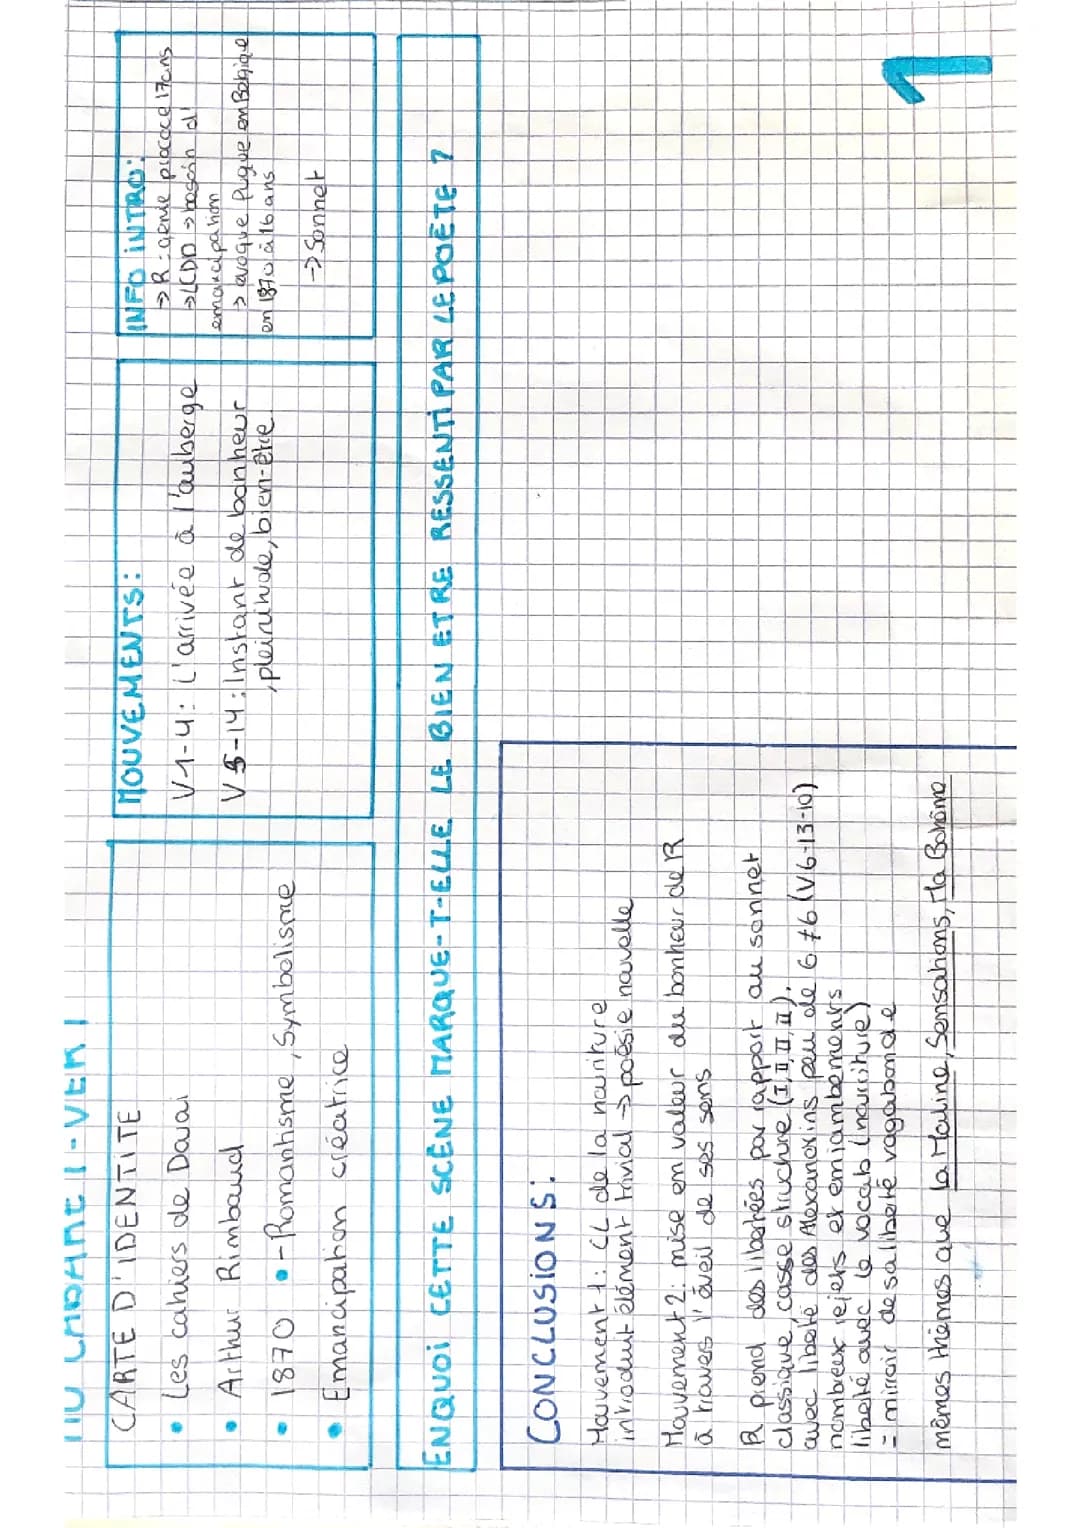 AU CABARET-VERT
CARTE D'IDENTITE
• Les cahiers de Douai
• Arthur Rimbaud
• 1870 • - Romantisme, Symbolisme
• Emancipation créatrice
MOUVEMENTS:
V1-4: L'arrivée à l'auberge
V5-14: Instant de bonheur
, pleinitude, bien-être
INFO INTRO:
→ R: génie précoce 17ans
→ LCDD → besoin d'
emancipation
→ évoque fugue en Belgique
en 1870 à 16 ans
→ Sonnet
ENQUOI CETTE SCÈNE MARQUE-T-ELLE LE BIEN ETRE RESSENTI PAR LE POÈTE ?
CONCLUSIONS:
Mouvement 1: CL de la nouriture
introduit élément trivial → poésie nouvelle
Mouvement 2: mise en valeur du bonheur de R
à travers l'éveil de ses sens
R prend des libertées par rapport au sonnet
classique, casse structure (I, II, II, II),
avec liberté des Alexandrins peu de 6 ≠ 6 (V6-13-10)
nombreux rejets et enjambements
liberté avec le vocab (nourriture)
= mirroir de sa liberté vagabonde
mêmes thèmes que La Maline, Sensations, Ma Bohème
1